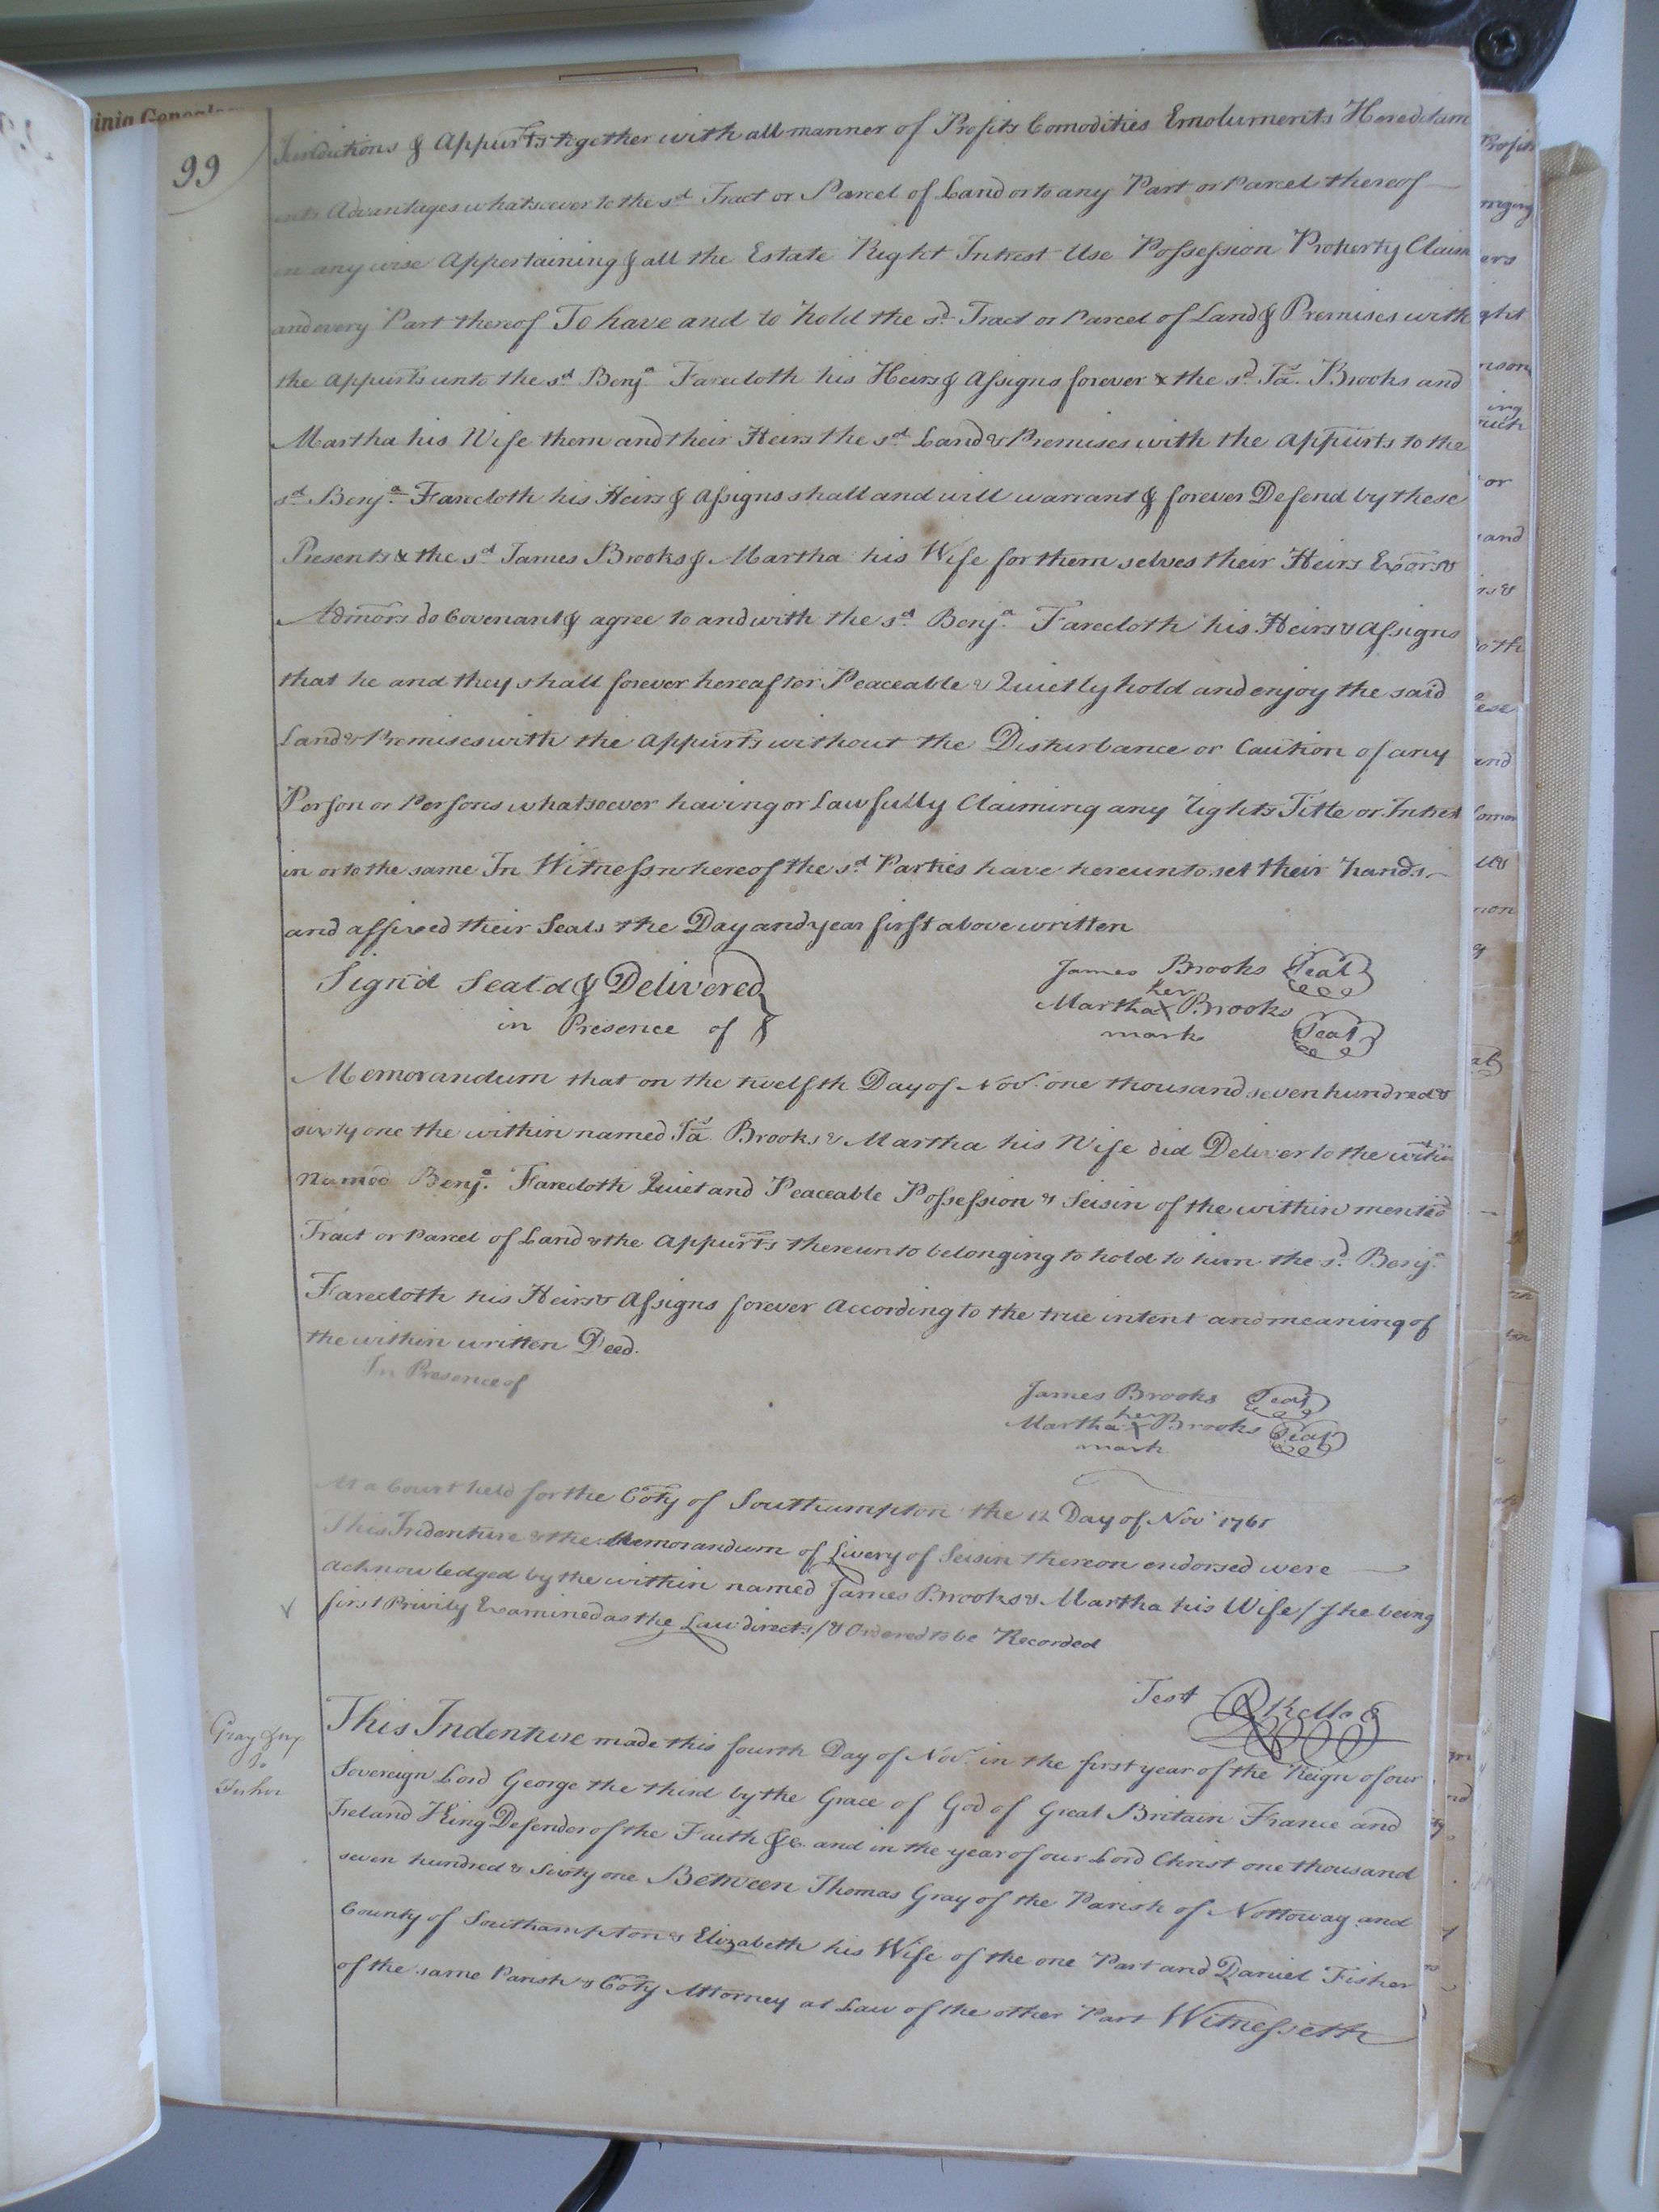 99
Juridictions & Appurts together with all manner of Profits Comodities Emoluments Hereditam
ents Advantages whatsoever to the sd Tract or Parcel of Land or to any Part or Parcel thereof
in any wise Appertaining & all the Estate Right Intrest Use Possession Property Claim
and every Part thereof To have and to hold the sd Tract or Parcel of Land & Premises with
the appurts unto the sd Benja Farecloth his Heirs & Assigns forever & the sd Jas Brooks and
Martha his Wife them and their Heirs the sd Land & Premises with the appurts to the
sd Benja Farecloth his Heirs & Assigns shall and will warrant & forever Defend by these
Presents & the sd James Brooks & Martha his Wife for them selves their Heirs Exors &
Admors do Covenant & agree to and with the sd Benja Farecloth his Heirs & Assigns
that he and they shall forever hereafter Peaceable & Quietly hold and enjoy the said
Land & Premises with the appurts without the Disturbance or Caution of any
Person or Persons whatsoever having or Lawfully Claiming any rights Title or Intrest
in or to the same In Witness whereof the sd Parties have hereunto set their hands
and affixed their Seals the Day and year first above written
Sign'd Seal'd & Delivered
in Presence of
James Brooks Seal
her
Martha X Brooks
mark Seal
Memorandum that on the twelfth Day of Nov. one thousand seven hundred &
sixty one the within named Jas Brooks & Martha his Wife did Deliver to the within
named Benja Farecloth Quiet and Peaceable Possession & Seisin of the within mentd
Tract or Parcel of Land & the appurts thereunto belonging to hold to him the sd Benja
Farecloth his Heirs & Assigns forever According to the true intent and meaning of
the within written Deed.
In Presence of
James Brooks Seal
her
Martha X Brooks Seal
mark
At a Court held for the Coty of Southampton the 12 Day of Nov 1761
This Indenture & the Memorandum of Livery of Seisin thereon endorsed were
acknowledged by the within named James Brooks & Martha his Wife / she being
first Privily Examined as the Law directs / & Ordered to be Recorded
Test
Gray &ux
to
Fisher
This Indenture made this fourth Day of Nov. in the first year of the Reign of our
Sovereign Lord George the third by the Grace of God of Great Britain France and
Ireland King Defender of the Faith &c. and in the year of our Lord Christ one thousand
seven hundred & Sixty one Between Thomas Gray of the Parish of Nottoway and
County of Southampton & Elizabeth his Wife of the one Part and Daniel Fisher
of the same Parish & Coty Attorney at Law of the other Part Witnesseth